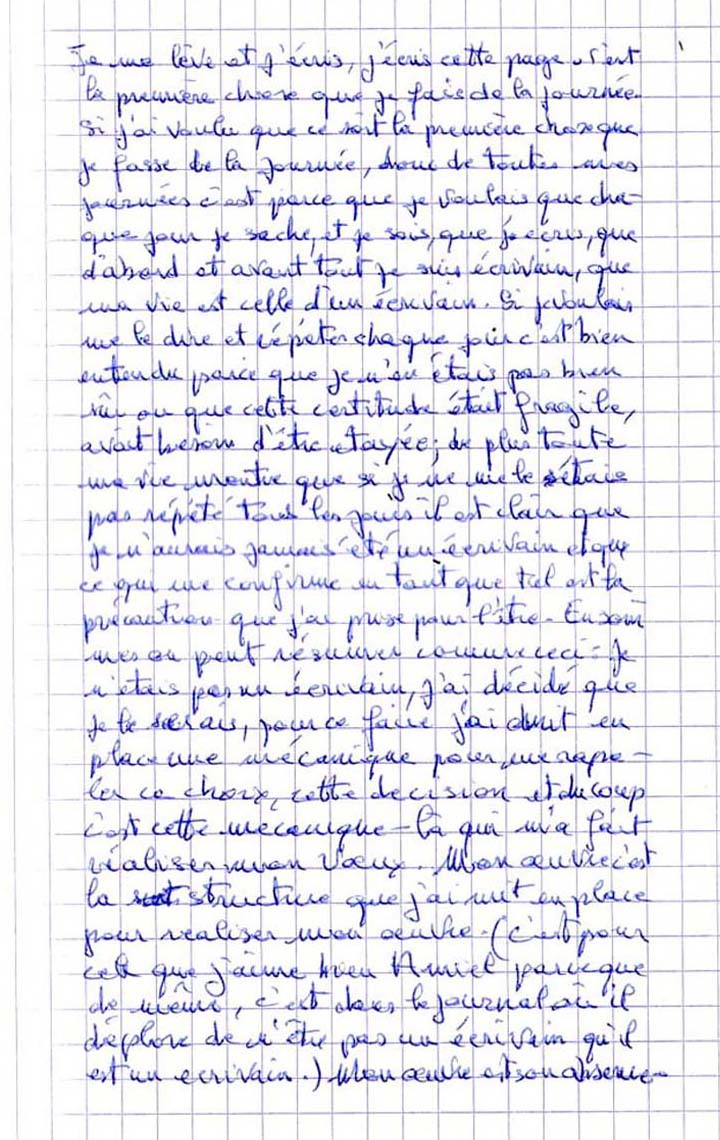 Je me lève et j'écris, j'écris cette page. C'est
la première chose que je fais de la journée.
Si j'ai voulu que ce soit la première chose que
je fasse de la journée, donc de toutes mes
journées c'est parce que je voulais que cha-
que jour je sache, et je sois, que j'écris, que
d'abord et avant tout je suis écrivain, que
ma vie est celle d'un écrivain. Si je voulais
me le dire et répéter chaque jour c'est bien
entendu parce que je n'en étais pas bien
sûr ou que cette certitude était fragile,
avait besoin d'être étayée; de plus toute
ma vie montre que si je ne me le étais
pas répété tous les jours il est clair que
je n'aurais jamais été un écrivain et que
ce qui me confirme en tant que tel est la
précaution que j'ai prise pour l'être. En som
mes on peut résumer comme ceci: Je
n'étais pas un écrivain, j'ai décidé que
je le serais, pour ce faire j'ai mit en
place une mécanique pour me rape-
ler ce choix, cette decision et du coup
c'est cette mecanique-là qui m'a fait
réaliser mon vœux. Mon œuvre c'est
la structure que j'ai mit en place
pour realiser mon œuvre. (c'est pour
cela que j'aime bien Amiel parceque
de même, c'est dans le journal où il
déplore de n'être pas un écrivain qu'il
est un ecrivain.) Mon œuvre est son absence-